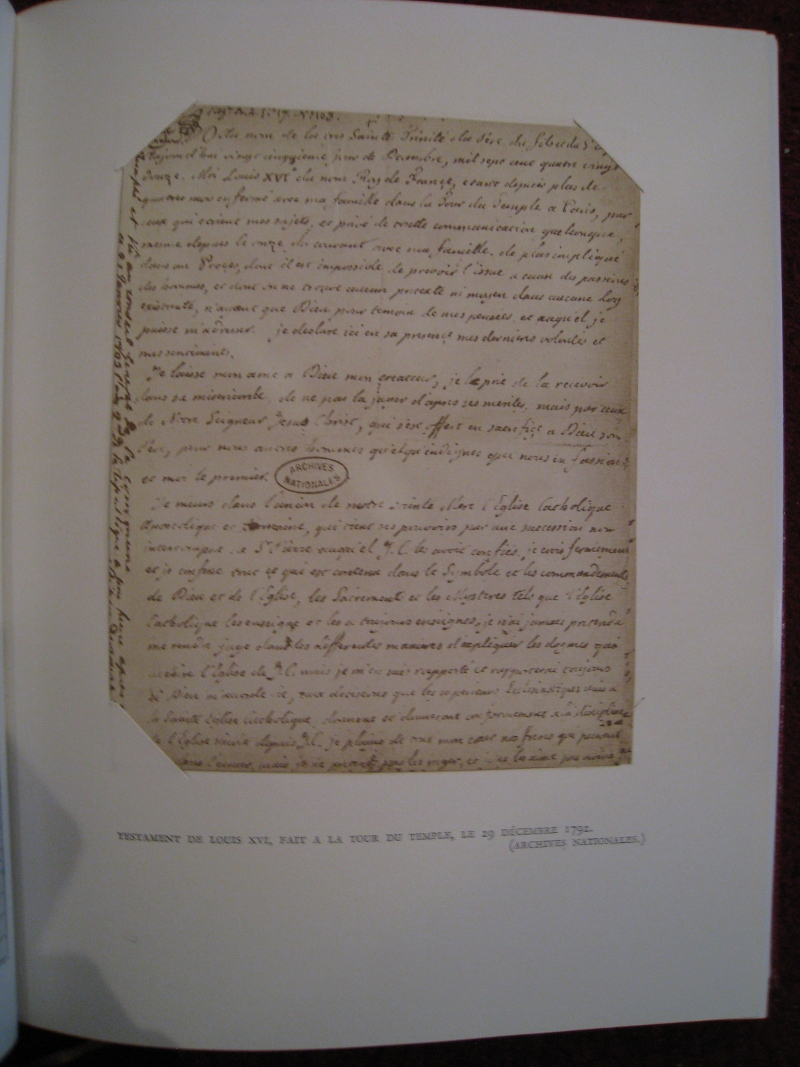 Au nom de la tres Sainte Trinité du Pere du fils et du St
Aujourd'hui vingt cinquieme jour de Decembre, mil sept cent quatre vingt
douze. Moi Louis XVIe du nom Roy de France, etant depuis plus de
quatres mois enfermé avec ma famille dans la Tour du Temple a Paris, par
ceux qui etoient mes sujets, et privé de toutte communication quelconque,
meme depuis le onze du courant avec ma famille. de plus impliqué
dans un Procès, dont il est impossible de prevoir l'issue a cause des passions
des hommes, et dont on ne trouve aucun pretexte ni moyen dans aucune Loy
existante, n'ayant que Dieu pour temoin de mes pensées et auquel je
puisse m'adresser. je declare ici en sa presence mes dernieres volontés et
mes sentiments.
Je laisse mon ame a Dieu mon createur, je le prie de la recevoir
dans sa misericorde, de ne pas la juger d'apres ses merites, mais par ceux
de Notre Seigneur Jesus Christ, qui s'est offert en sacrifice a Dieu son
Pere, pour nous autres hommes quelqu'indignes que nous en fussions
et moi le premier.
ARCHIVES
NATIONALES
Je meurs dans l'union de notre Sainte Mere l'Eglise Catholique
Apostolique et Romaine, qui tient ses pouvoirs par une succession non
interrompue de St Pierre auquel J.C. les avoit confiés. je crois fermement
et je confesse tout ce qui est contenu dans le Symbole et les commandements
de Dieu et de l'Eglise, les Sacrements et les Mysteres tels que l'Eglise
Catholique les enseigne et les a toujours enseignés. je n'ai jamais pretendu
me rendre juge dans les differentes manieres d'expliquer les dogmes qui
l'Eglise de J.C. mais je m'en suis rapporté et rapporterai toujours
si Dieu m'accorde vie, aux decisions que les superieurs Ecclesiastiques unis a
la Sainte Eglise Catholique, donnent et donneront conformement a la discipline
de l'Eglise suivie depuis J.C. je plains de tout mon coeur nos freres qui peuvent
TESTAMENT DE LOUIS XVI, FAIT A LA TOUR DU TEMPLE, LE 29 DÉCEMBRE 1792.
(ARCHIVES NATIONALES.)